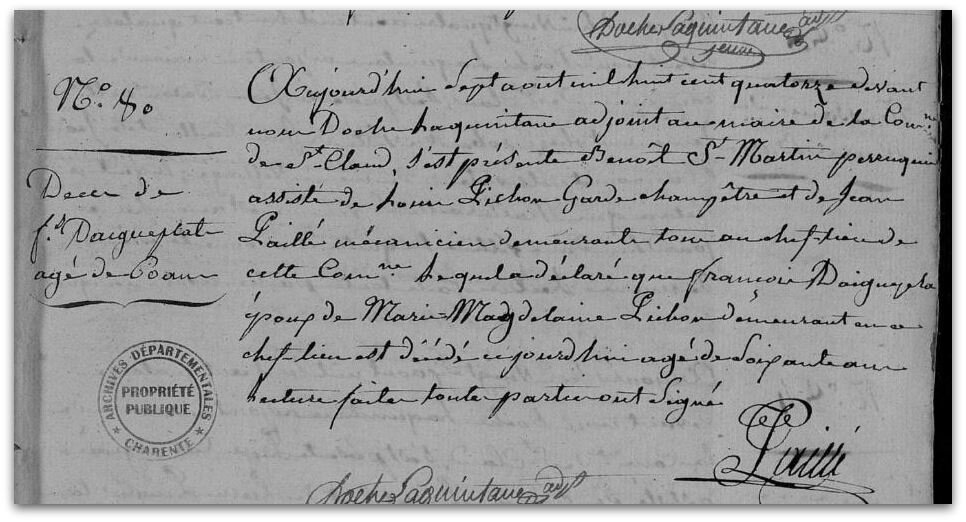 Doche Laquintane adjt
N.o 80
Deces de
f.s Daigueplat
agé de 60 ans
Aujourd'hui Sept aout mil huit cent quatorze devant
nous Doche Laquintane adjoint au maire de la Comne
de St Claud, s'est présenté Benoît St Martin perruquier
assisté de Louis Pichon Garde champêtre et de Jean
Paillé mécanicien demeurants tous au chef-lieu de
cette Comne Lequel a déclaré que françois
époux de Marie Magdelaine Pichon demeurant en ce
chef lieu est décédé ce jourd'hui agé de Soixante ans
Lecture faite toute parties ont Signé
Paillé
Doche Laquintane adjt
ARCHIVES DÉPARTEMENTALES
PROPRIÉTÉ
PUBLIQUE
CHARENTE